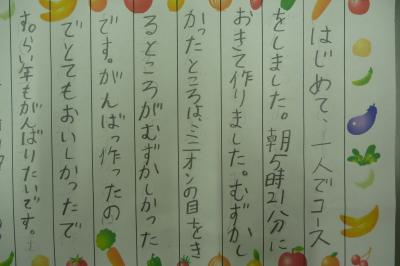 はじめて、一人でコース
をしました。朝5時21分に
おきて作りました。むずかし
かったところは、ミニオンの目をき
るところがむずかしかった
です。がんばっ作ったの
でとてもおいしかったで
す。らい年もがんばりたいです。